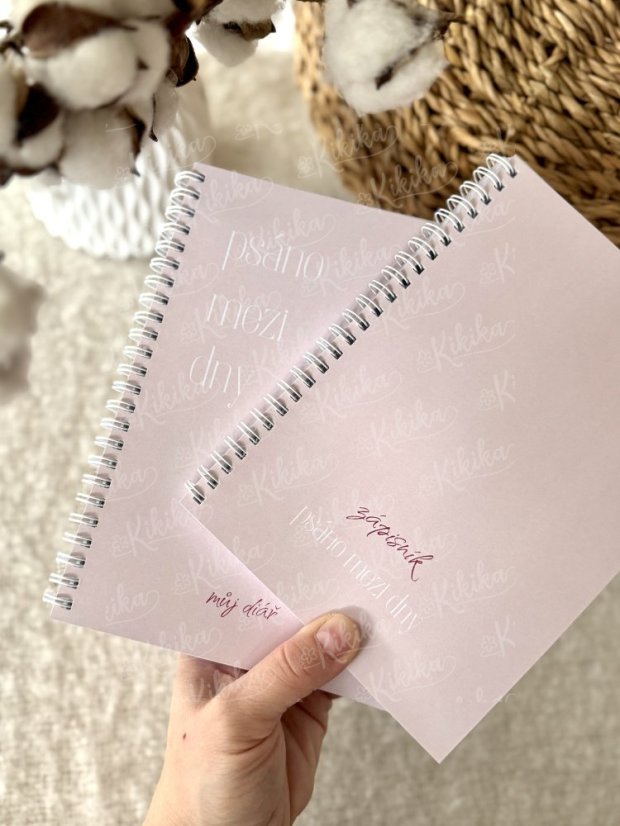 psáno
mezi
dny
můj diář
zápisník
psáno mezi dny
Kikika